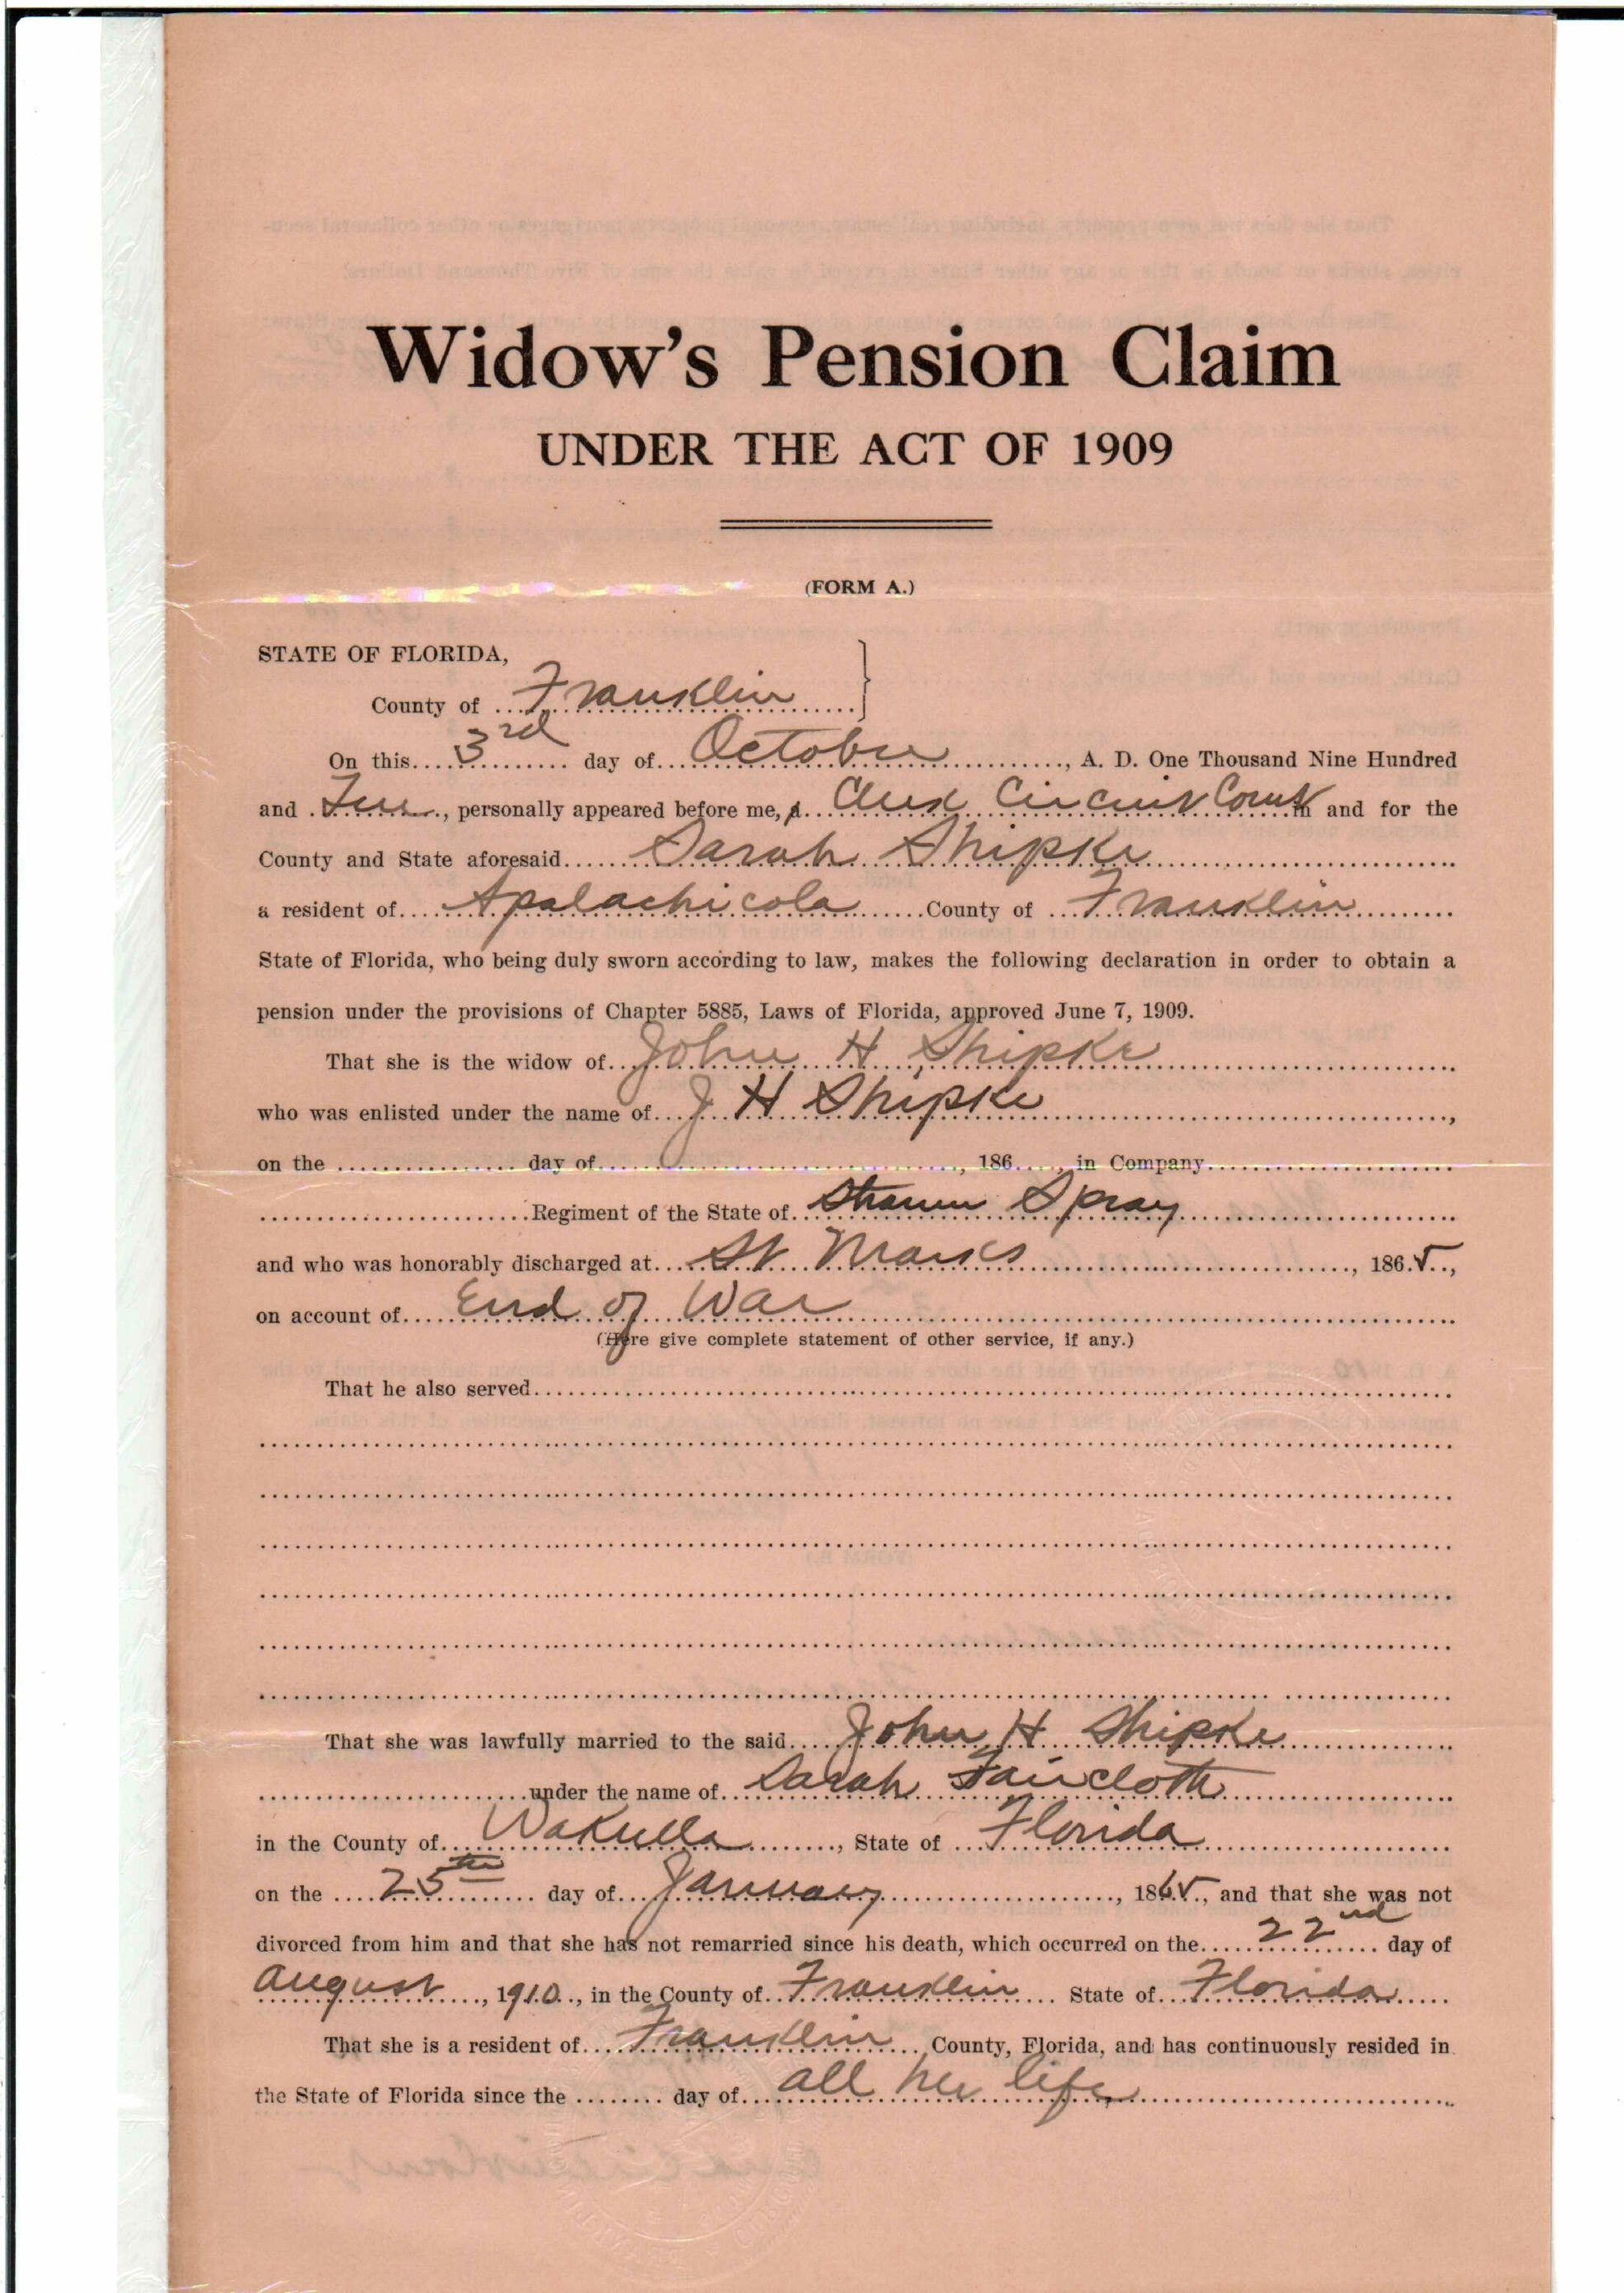 Widow's Pension Claim
UNDER THE ACT OF 1909
(FORM A.)
STATE OF FLORIDA,
County of Franklin
On this 3rd day of October, A. D. One Thousand Nine Hundred
and Ten, personally appeared before me, a Clerk Circuit Court in and for the
County and State aforesaid Sarah Shipke
a resident of Apalachicola County of Franklin
State of Florida, who being duly sworn according to law, makes the following declaration in order to obtain a
pension under the provisions of Chapter 5885, Laws of Florida, approved June 7, 1909.
That she is the widow of John H Shipke
who was enlisted under the name of J H Shipke,
on the day of , 186 , in Company
Regiment of the State of Steamer Spray
and who was honorably discharged at St Marks, 1865,
on account of End of War
(Here give complete statement of other service, if any.)
That he also served
That she was lawfully married to the said John H Shipke
under the name of Sarah Faircloth
in the County of Wakulla, State of Florida
on the 25th day of January, 1865, and that she was not
divorced from him and that she has not remarried since his death, which occurred on the 22nd day of
August, 1910, in the County of Franklin State of Florida
That she is a resident of Franklin County, Florida, and has continuously resided in
the State of Florida since the day of all her life